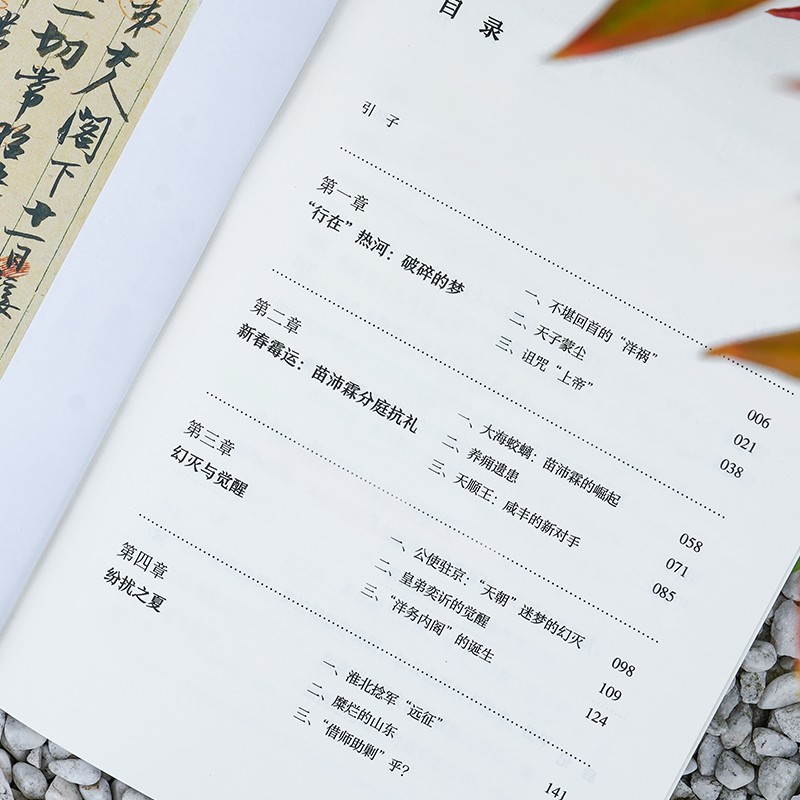 第夫人阁下十一日
一切常
目 录
引 子
第一章
“行在”热河：破碎的梦
一、不堪回首的“洋祸” 006
二、天子蒙尘 021
三、诅咒“上帝” 038
第二章
新春霉运：苗沛霖分庭抗礼
一、大海蛟螭：苗沛霖的崛起 058
二、养痈遗患 071
三、天顺王：咸丰的新对手 085
第三章
幻灭与觉醒
一、公使驻京：“天朝”迷梦的幻灭 098
二、皇弟奕䜣的觉醒 109
三、“洋务内阁”的诞生 124
第四章
纷扰之夏
一、淮北捻军“远征” 141
二、糜烂的山东
三、“借师助剿”乎？